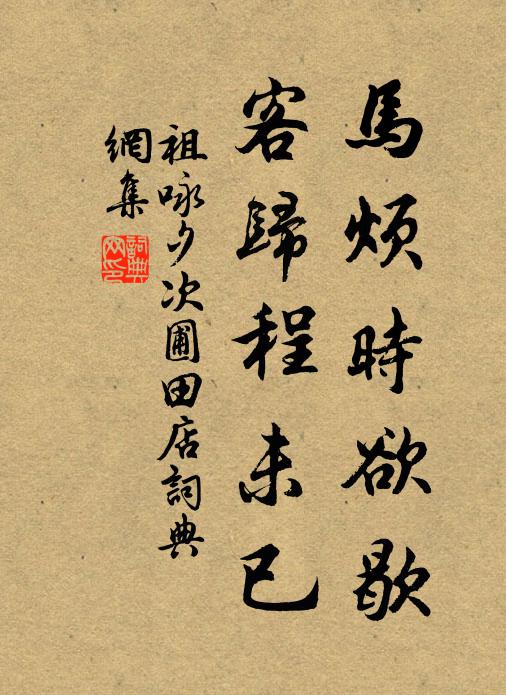 馬煩時欲歇
客歸程未已
祖咏夕次圃田店詞典
網集
詞典
网印